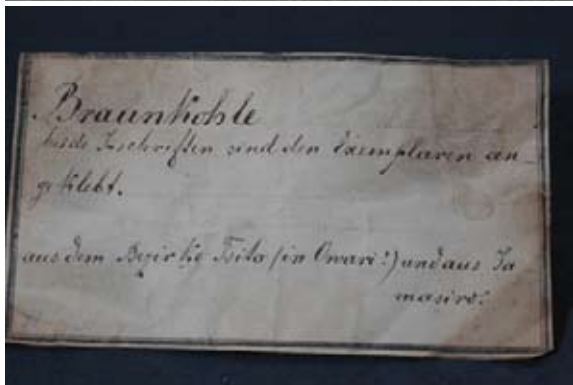 Braunkohle
beide Inschriften sind den Exemplaren an-
geklebt.
aus dem Bezirke Tsita (in Owari?) und aus Ja
masiro.